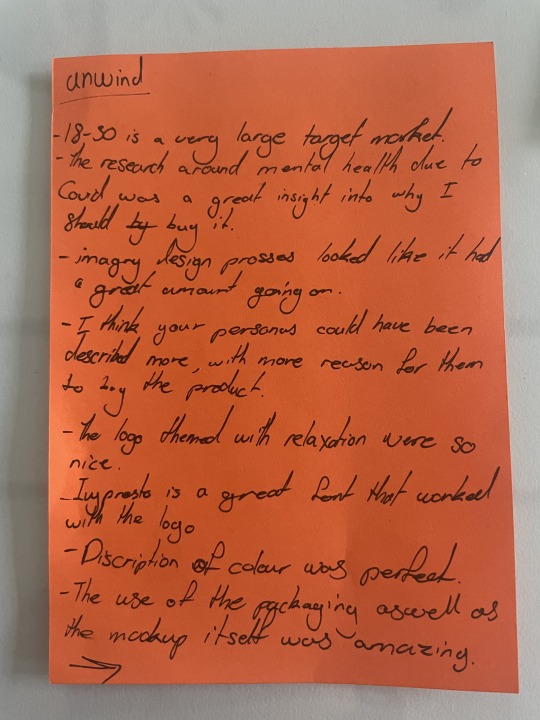 unwind
- 18-30 is a very large target market.
- the research around mental health due to
Covid was a great insight into why I
should by buy it.
- imagry design prosses looked like it had
a great amount going on.
- I think your personas could have been
described more, with more reason for them
to buy the product.
- the logo themed with relaxation were so
nice.
- Ivypresto is a great font that worked
with the logo
- Discription of colour was perfect.
- The use of the packaging aswell as
the mockup itself was amazing.